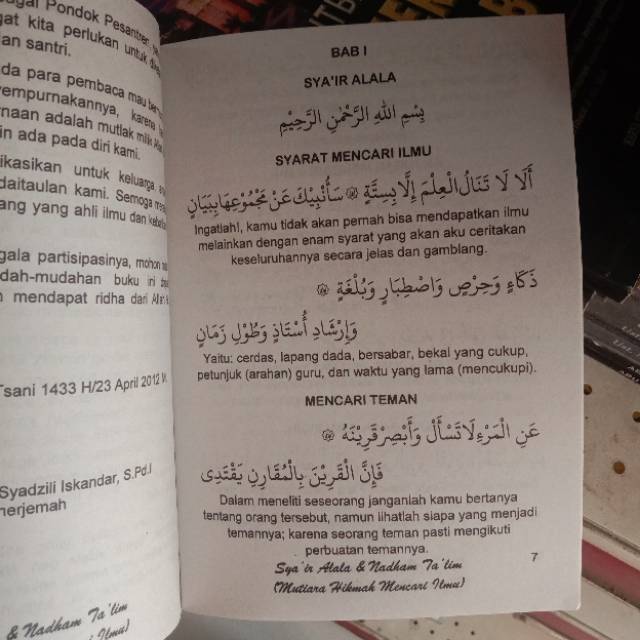 Pondok Pesantren
kita perlukan untuk
an santri.
da para pembaca mau
empurnakannya, karena
naan adalah mutlak milik
in ada pada diri kami.
ikasikan untuk keluarga
daitaulan kami. Semoga
ang yang ahli ilmu dan
gala partisipasinya, mohon
dah-mudahan buku ini
mendapat ridha dari
Tsani 1433 H/23 April 2012 M.
Syadzili Iskandar, S.Pd.I
nerjemah
& Nadham Ta'lim
Ilmu)
BAB I
SYA'IR ALALA
بِسْمِ اللهِ الرَّحْمٰنِ الرَّحِيْمِ
SYARAT MENCARI ILMU
أَلَا لَا تَنَالُ الْعِلْمَ إِلَّا بِسِتَّةٍ ۞ سَأُنْبِيْكَ عَنْ مَجْمُوْعِهَا بِبَيَانٍ
Ingatlah!, kamu tidak akan pernah bisa mendapatkan ilmu
melainkan dengan enam syarat yang akan aku ceritakan
keseluruhannya secara jelas dan gamblang.
ذَكَاءٍ وَحِرْصٍ وَاصْطِبَارٍ وَبُلْغَةٍ ۞
وَإِرْشَادِ أُسْتَاذٍ وَطُوْلِ زَمَانٍ
Yaitu: cerdas, lapang dada, bersabar, bekal yang cukup,
petunjuk (arahan) guru, dan waktu yang lama (mencukupi).
MENCARI TEMAN
عَنِ الْمَرْءِ لَا تَسْأَلْ وَأَبْصِرْ قَرِيْنَهُ ۞
فَإِنَّ الْقَرِيْنَ بِالْمُقَارِنِ يَقْتَدِى
Dalam meneliti seseorang janganlah kamu bertanya
tentang orang tersebut, namun lihatlah siapa yang menjadi
temannya; karena seorang teman pasti mengikuti
perbuatan temannya.
7
Sya'ir Alala & Nadham Ta'lim
(Mutiara Hikmah Mencari Ilmu)